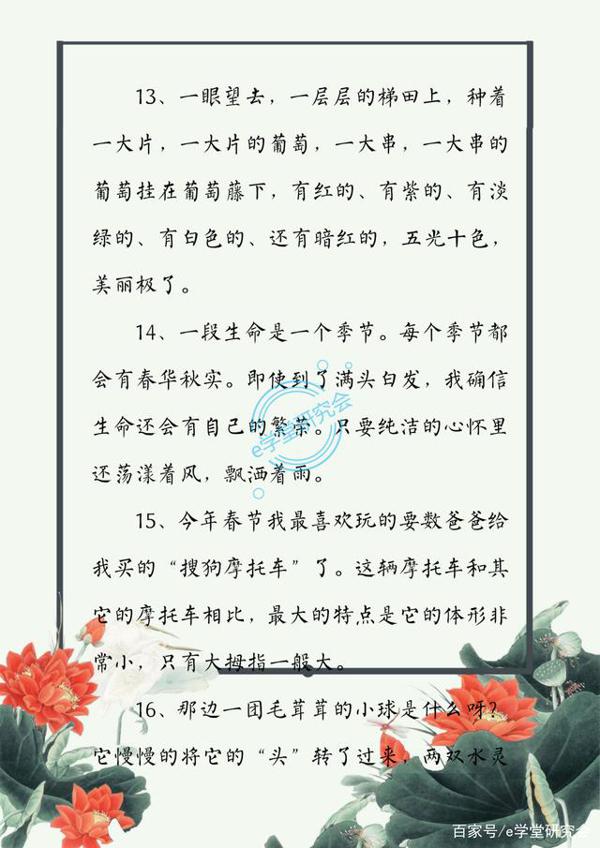 13、一眼望去，一层层的梯田上，种着
一大片，一大片的葡萄，一大串，一大串的
葡萄挂在葡萄藤下，有红的、有紫的、有淡
绿的、有白色的、还有暗红的，五光十色，
美丽极了。
14、一段生命是一个季节。每个季节都
会有春华秋实。即使到了满头白发，我确信
生命还会有自己的繁荣。只要纯洁的心怀里
还荡漾着风，飘洒着雨。
e学堂研究会
15、今年春节我最喜欢玩的要数爸爸给
我买的“搜狗摩托车”了。这辆摩托车和其
它的摩托车相比，最大的特点是它的体形非
常小，只有大拇指一般大。
16、那边一团毛茸茸的小球是什么呀？
它慢慢的将它的“头”转了过来，两双水灵
百家号/e学堂研究会